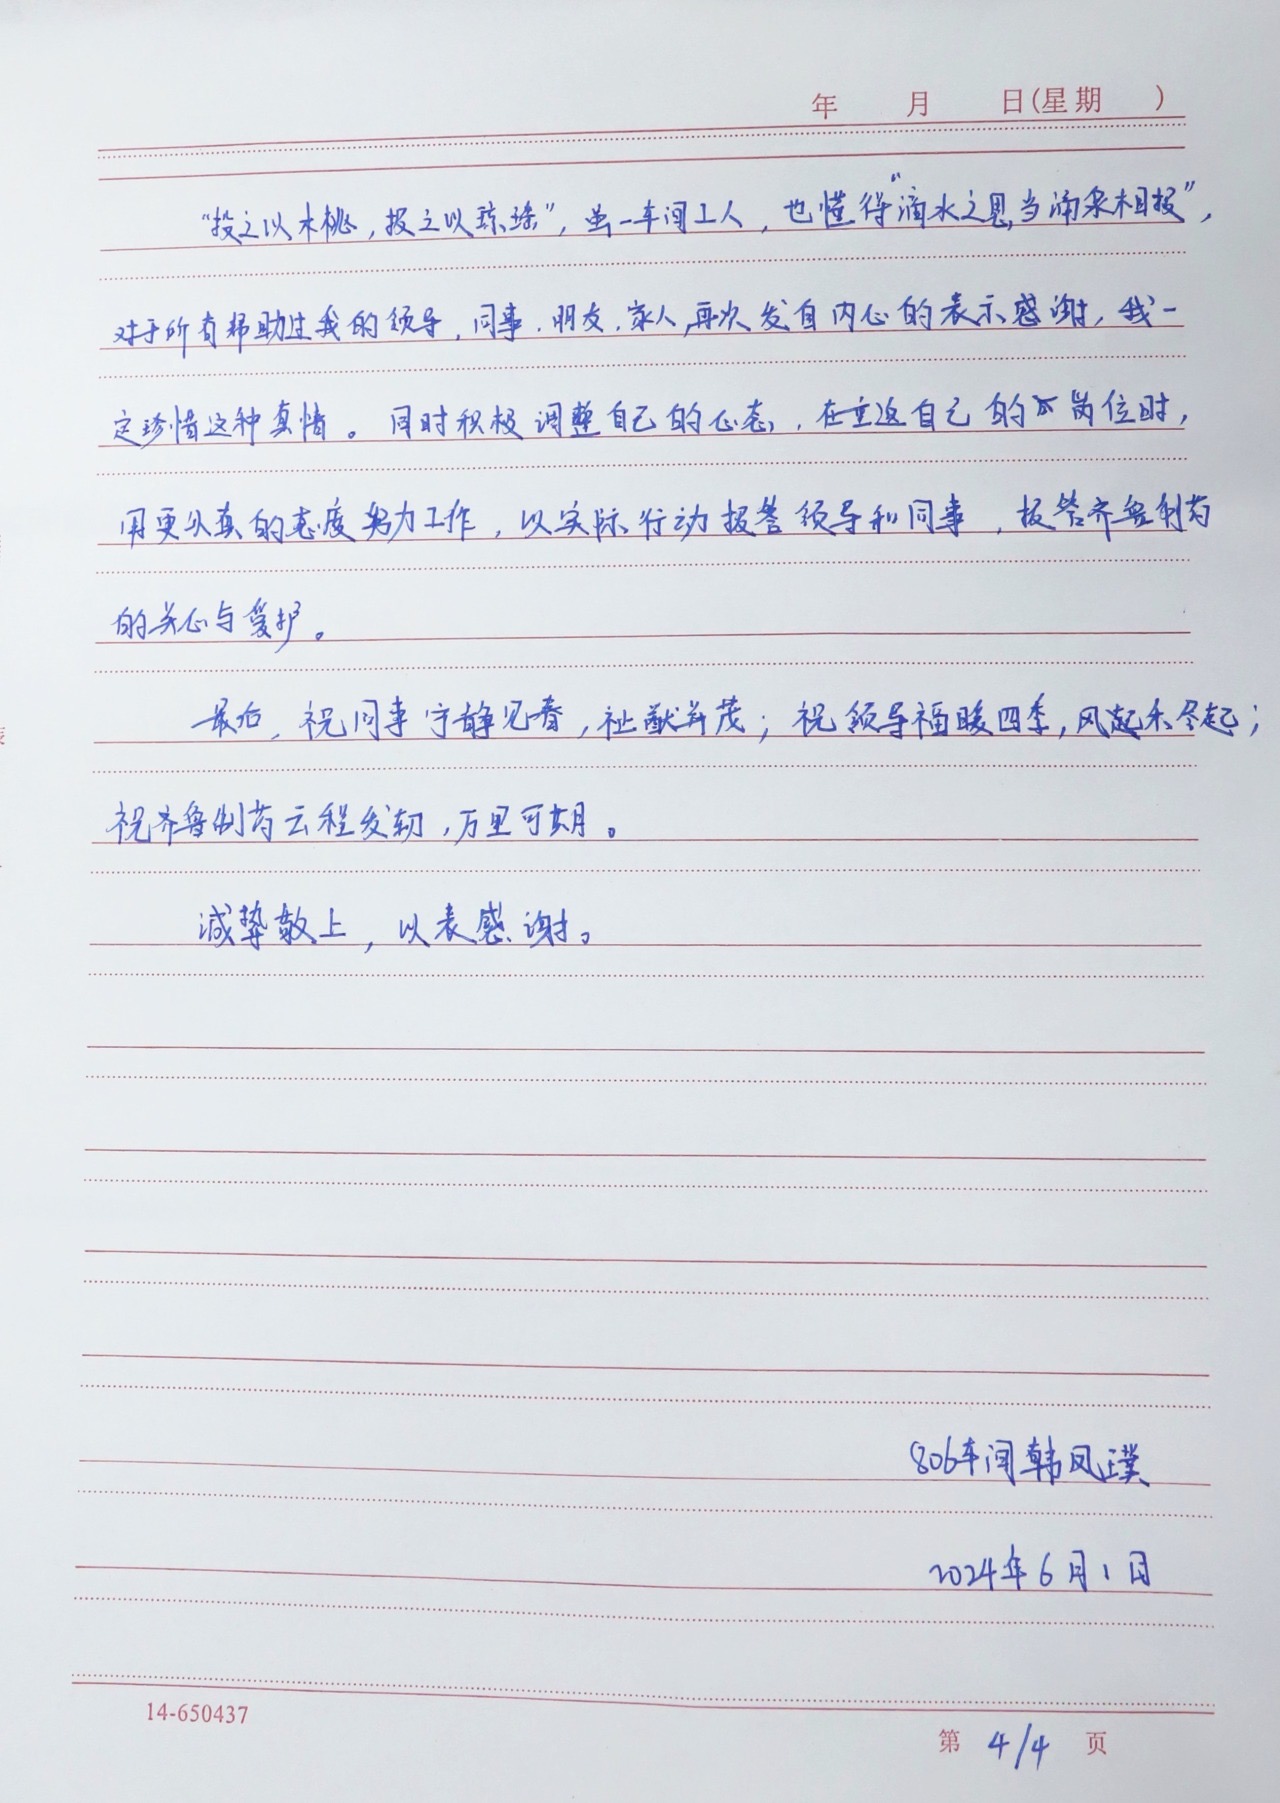 年 月 日(星期 )
“投之以木桃，报之以琼瑶”，虽一车间工人，也懂得“滴水之恩，当涌泉相报”，
对于所有帮助过我的领导、同事、朋友、家人，再次发自内心的表示感谢，我一
定珍惜这种真情。同时积极调整自己的心态，在重返自己的岗位时，
用更认真的态度努力工作，以实际行动报答领导和同事，报答齐鲁制药
的关心与爱护。
最后，祝同事宁静见春，祉猷并茂；祝领导福暖四季，风起禾尽起；
祝齐鲁制药云程发轫，万里可期。
诚挚敬上，以表感谢。
806车间韩凤璞
2024年6月1日
14-650437
第 4/4 页